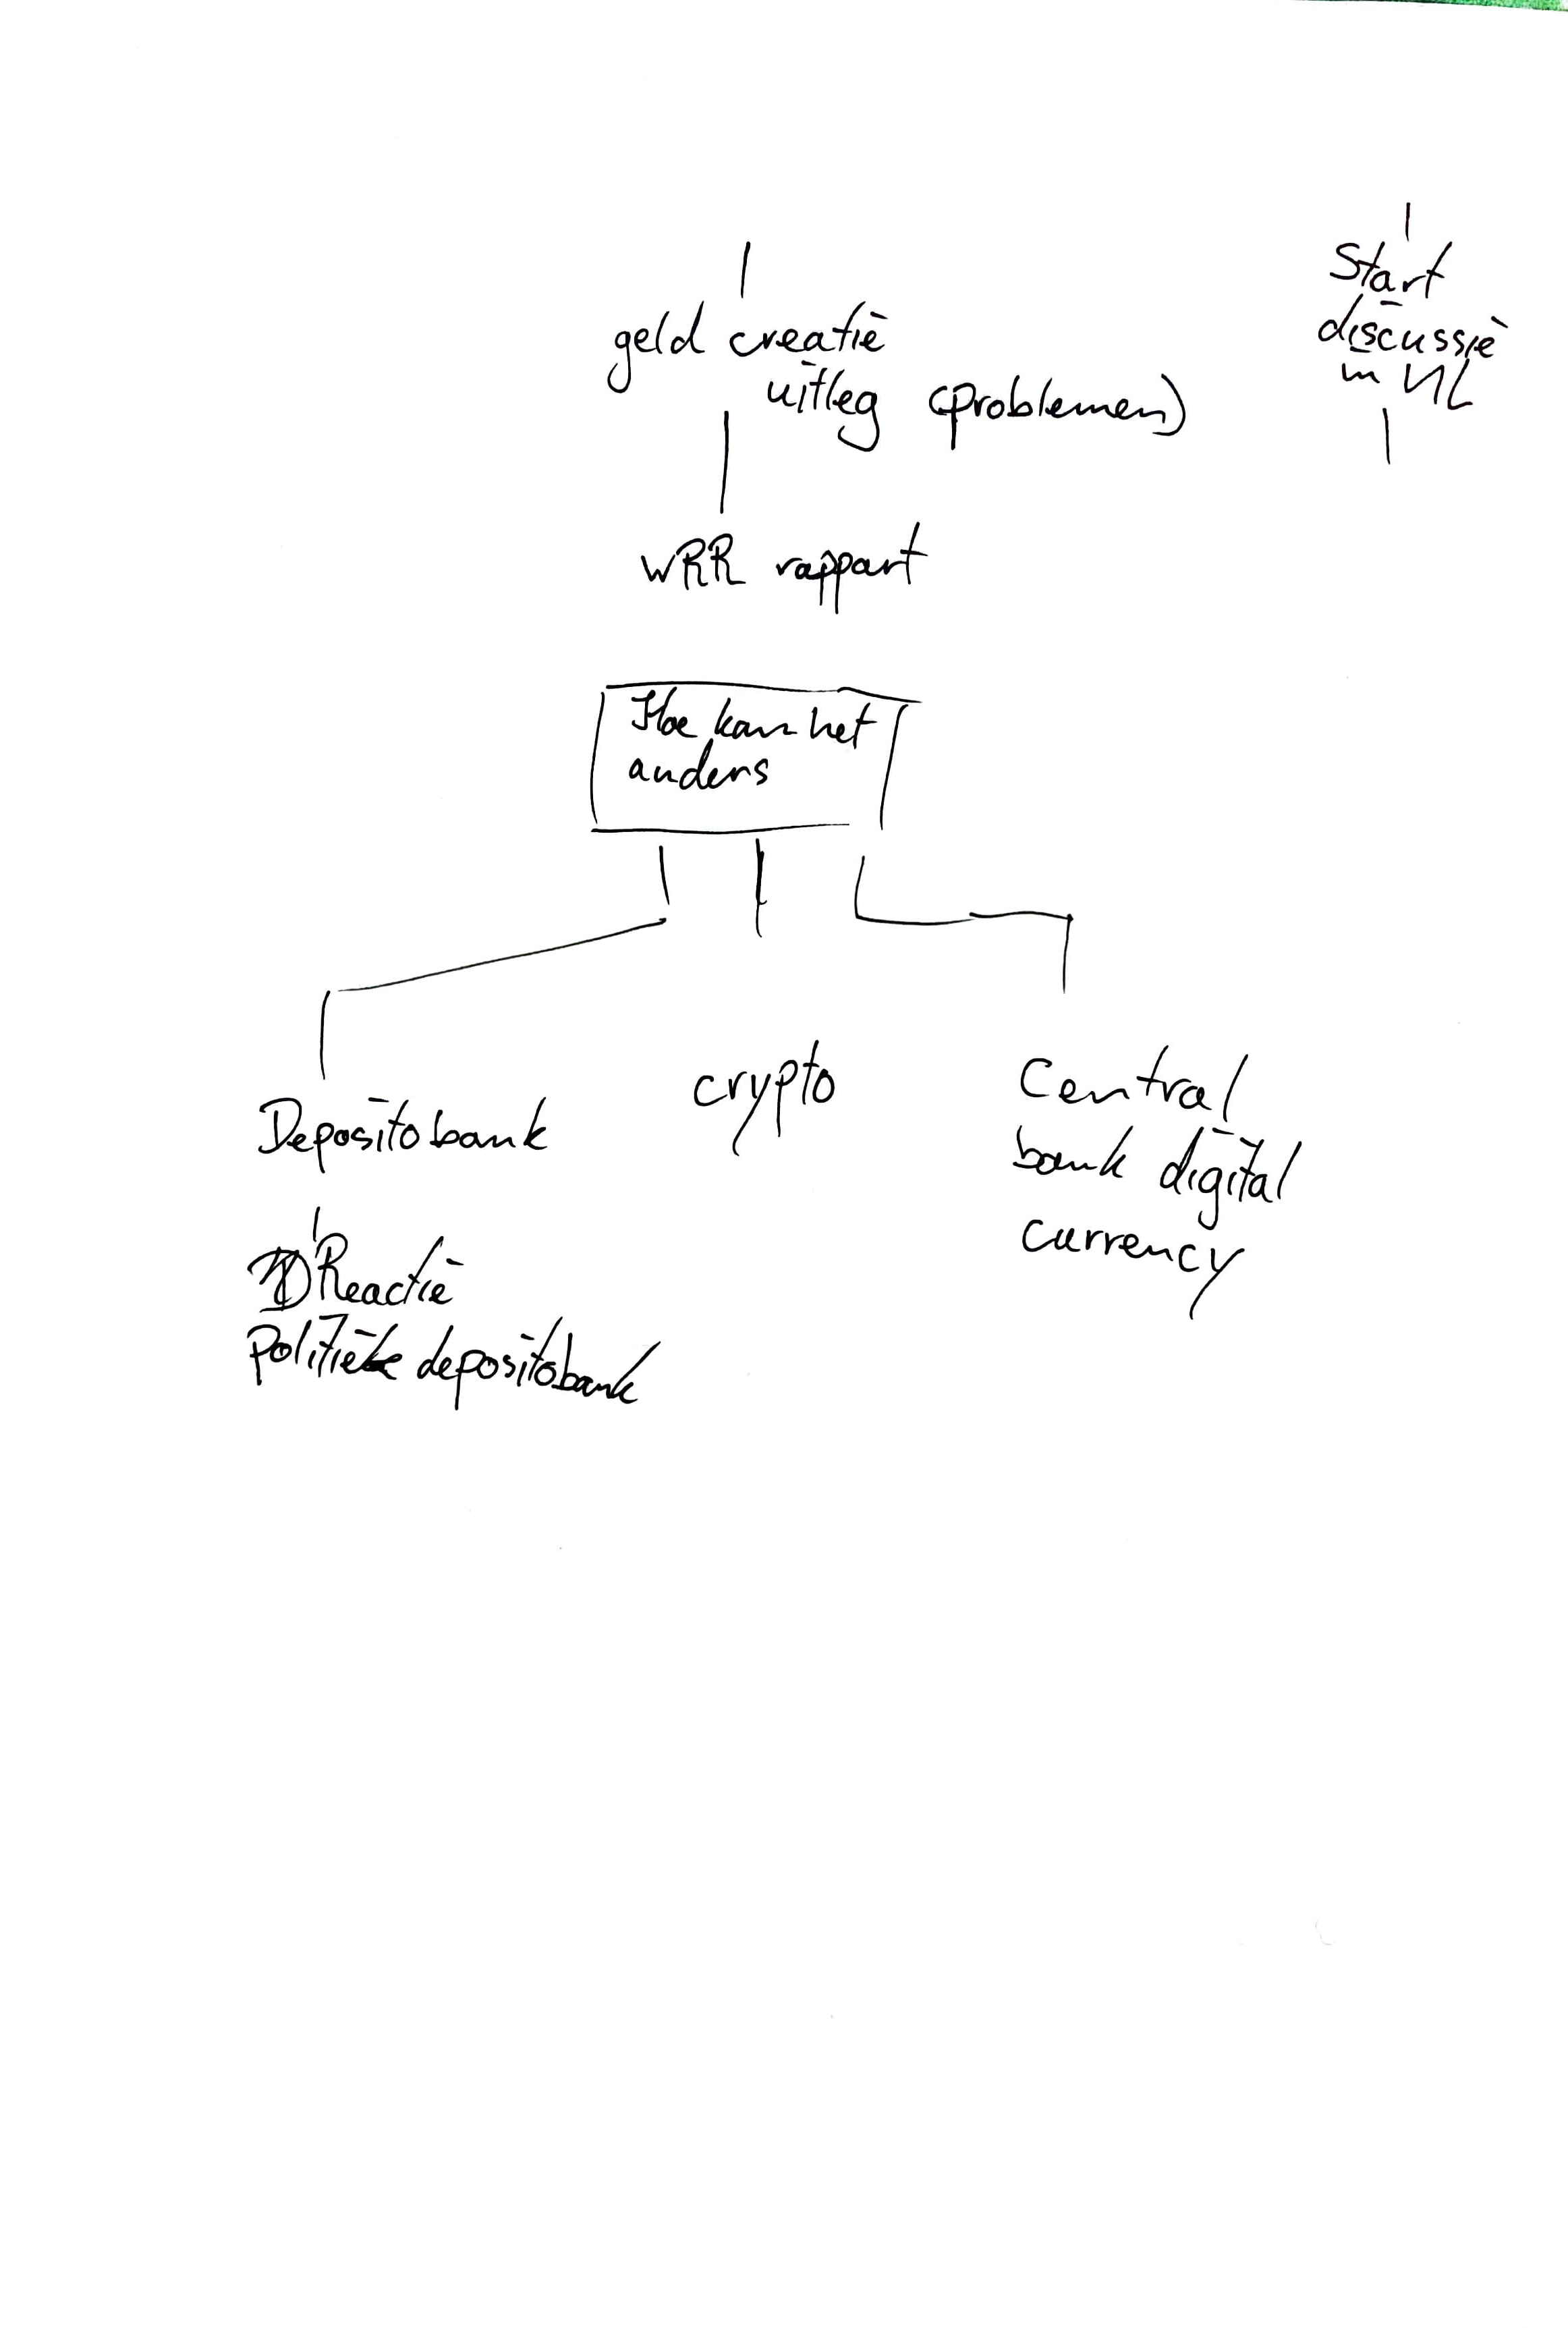 geld creatie
uitleg (problemen)
Start
discussie
in NL
WRR rapport
Hoe kan het
anders
Depositobank
crypto
Central
bank digital
currency
1) Reactie
Politiek depositobank